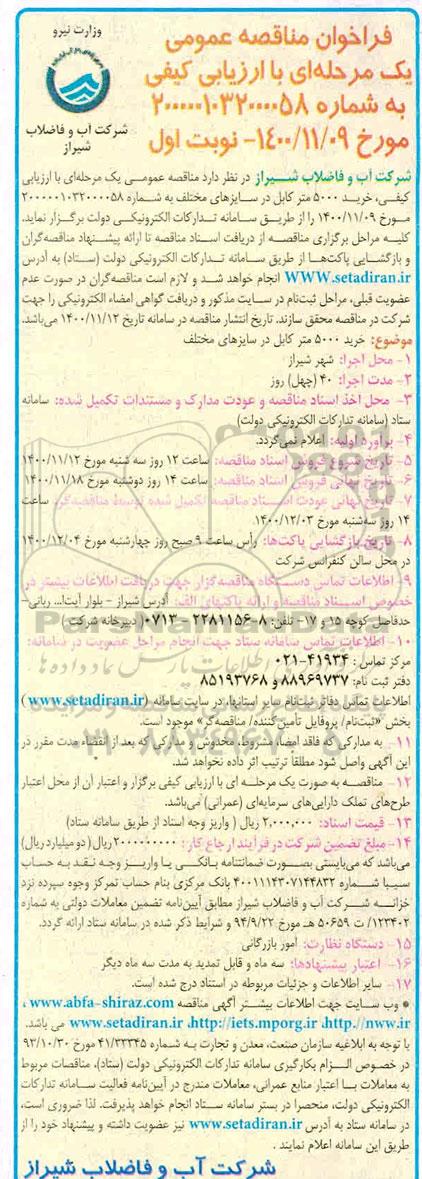 وزارت نیرو
شرکت آب و فاضلاب
شیراز
فراخوان مناقصه عمومی
یک مرحله‌ای با ارزیابی کیفی
به شماره ۲۰۰۰۰۰۱۰۳۲۰۰۰۰۵۸
مورخ ۱۴۰۰/۱۱/۰۹- نوبت اول
شرکت آب و فاضلاب شیراز در نظر دارد مناقصه عمومی یک مرحله‌ای با ارزیابی
کیفی، خرید ۵۰۰۰ متر کابل در سایزهای مختلف به شماره ۲۰۰۰۰۰۱۰۳۲۰۰۰۰۵۸
مورخ ۱۴۰۰/۱۱/۰۹ را از طریق سامانه تدارکات الکترونیکی دولت برگزار نماید.
کلیه مراحل برگزاری مناقصه از دریافت اسناد مناقصه تا ارائه پیشنهاد مناقصه‌گران
و بازگشایی پاکت‌ها از طریق سامانه تدارکات الکترونیکی دولت (ستاد) به آدرس
WWW.setadiran.ir انجام خواهد شد و لازم است مناقصه‌گران در صورت عدم
عضویت قبلی، مراحل ثبت‌نام در سایت مذکور و دریافت گواهی امضاء الکترونیکی را جهت
شرکت در مناقصه محقق سازند. تاریخ انتشار مناقصه در سامانه تاریخ ۱۴۰۰/۱۱/۱۲ می‌باشد.
موضوع: خرید ۵۰۰۰ متر کابل در سایزهای مختلف
۱- محل اجرا: شهر شیراز
۲- مدت اجرا: ۴۰ (چهل) روز
۳- محل اخذ اسناد مناقصه و عودت مدارک و مستندات تکمیل شده: سامانه
ستاد (سامانه تدارکات الکترونیکی دولت)
۴- برآورد اولیه: اعلام نمی‌گردد.
۵- تاریخ شروع فروش اسناد مناقصه: ساعت ۱۲ روز سه شنبه مورخ ۱۴۰۰/۱۱/۱۲
۶- تاریخ نهائی فروش اسناد مناقصه: ساعت ۱۴ روز دوشنبه مورخ ۱۴۰۰/۱۱/۱۸
۷- تاریخ نهائی عودت اسناد مناقصه تکمیل شده توسط مناقصه‌گر: ساعت
۱۴ روز سه‌شنبه مورخ ۱۴۰۰/۱۲/۰۳.
۸- تاریخ بازگشایی پاکت‌ها: رأس ساعت ۹ صبح روز چهارشنبه مورخ ۱۴۰۰/۱۲/۰۴
در محل سالن کنفرانس شرکت
۹- اطلاعات تماس دستگاه مناقصه گزار جهت دریافت اطلاعات بیشتر در
خصوص اسناد مناقصه و ارائه پاکتهای الف: آدرس شیراز - بلوار آیت‌ا... ربانی-
حدفاصل کوچه ۱۵ و ۱۷- تلفن: ۸-۲۲۸۱۱۵۶ -۰۷۱۳ ( دبیرخانه شرکت )
۱۰- اطلاعات تماس سامانه ستاد جهت انجام مراحل عضویت در سامانه:
مرکز تماس : ۴۱۹۳۴-۰۲۱
دفتر ثبت نام: ۸۸۹۶۹۷۳۷ و ۸۵۱۹۳۷۶۸
اطلاعات تماس دفاتر ثبت‌نام سایر استانها، در سایت سامانه (www.setadiran.ir)
بخش «ثبت‌نام/ پروفایل تأمین‌کننده/ مناقصه‌گر» موجود است.
۱۱- به مدارکی که فاقد امضاء، مشروط، مخدوش و مدارکی که بعد از انقضاء مدت مقرر در
این آگهی واصل شود مطلقا ترتیب اثر داده نخواهد شد.
۱۲- مناقصه به صورت یک مرحله ای با ارزیابی کیفی برگزار و اعتبار آن از محل اعتبار
طرح‌های تملک دارایی‌های سرمایه‌ای (عمرانی) می‌باشد.
۱۳- قیمت اسناد: ۲,۰۰۰,۰۰۰ ریال ( واریز وجه اسناد از طریق سامانه ستاد)
۱۴- مبلغ تضمین شرکت در فرآیند ارجاع کار : ۲۰۰۰۰۰۰۰۰۰ ریال (دو میلیارد ریال)
می‌باشد که می‌بایستی بصورت ضمانتنامه بانکی یا واریز وجه نقد به حساب
سیبا شماره ۴۰۰۱۱۱۴۳۰۷۱۴۴۸۳۲ بانک مرکزی بنام حساب تمرکز وجوه سپرده نزد
خزانه شرکت آب و فاضلاب شیراز مطابق آیین‌نامه تضمین معاملات دولتی به شماره
۱۲۳۴۰۲/ ت ۵۰۶۵۹ هـ مورخ ۹۴/۹/۲۲ و شرایط ذکر شده در سامانه ستاد ارائه گردد.
۱۵- دستگاه نظارت: امور بازرگانی
۱۶- اعتبار پیشنهادها: سه ماه و قابل تمدید به مدت سه ماه دیگر
۱۷- سایر اطلاعات و جزئیات مربوطه در اسناد درج شده است.
• وب سایت جهت اطلاعات بیشتر آگهی مناقصه www.abfa-shiraz.com ،
http://nww.ir، http://iets.mporg.ir، www.setadiran.ir می باشد.
با توجه به ابلاغیه سازمان صنعت، معدن و تجارت به شماره ۴۱/۳۳۳۴۵ مورخ ۹۳/۱۰/۳۰
در خصوص الزام بکارگیری سامانه تدارکات الکترونیکی دولت (ستاد)، مناقصات مربوط
به معاملات با اعتبار منابع عمرانی، معاملات مندرج در آیین‌نامه فعالیت سامانه تدارکات
الکترونیکی دولت، منحصرا در بستر سامانه ستاد انجام خواهد پذیرفت. لذا ضروری است،
در سامانه ستاد به آدرس www.setadiran.ir نیز عضویت داشته و پیشنهاد خود را از
طریق این سامانه اعلام نمایند .
شرکت آب و فاضلاب شیراز